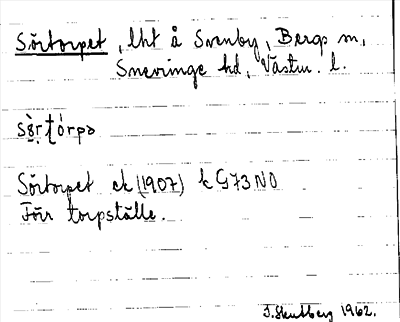 Sörtorpet, lht å Svenby, Bergs sn,
Snevringe hd, Västm. l.
sö̀r̥ṭórpə
Sörtorpet ek (1907) k G73NO
Förr torpställe.
1962.